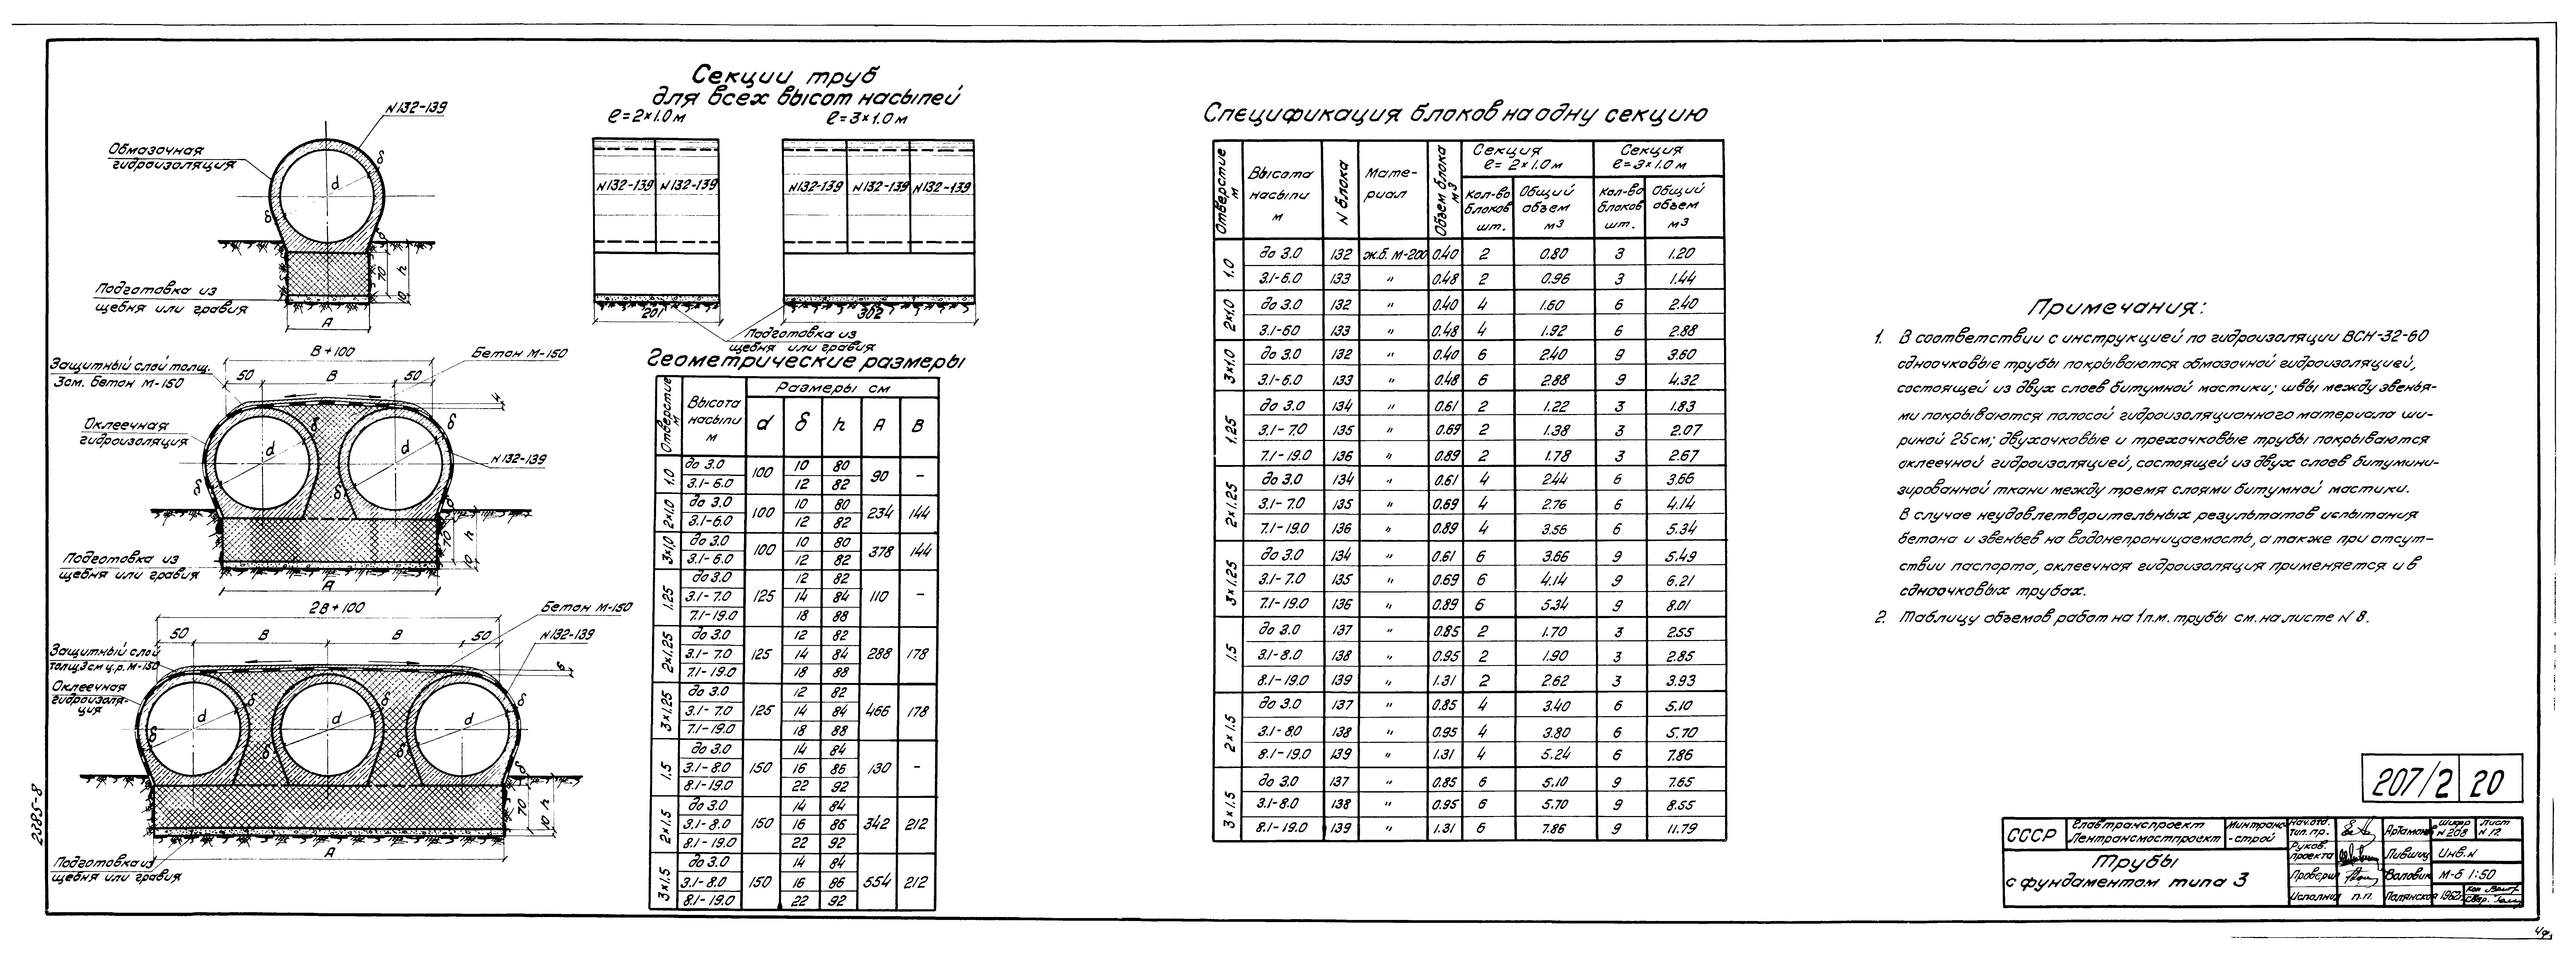 Секции труб
для всех высот насыпей
ℓ=2×1.0м
ℓ=3×1.0м
N132-139 N132-139
N132-139 N132-139 N132-139
201
302
Подготовка из
щебня или гравия
N132-139
Обмазочная
гидроизоляция
d
δ
δ
70
h
10
Подготовка из
щебня или гравия
A
B+100
Бетон М-150
Защитный слой толщ.
3см. бетон М-150
50 B 50
Оклеечная
гидроизоляция
δ
d
d
δ
N132-139
δ
δ
70
h
10
Подготовка из
щебня или гравия
A
2B+100
Бетон М-150
50 B B 50
N132-139
Защитный слой
толщ3см ц.р. М-150
Оклеечная
гидроизоля-
ция
d
d
d
δ
δ
70
h
10
Подготовка из
щебня или гравия
A
2385-8
Геометрические размеры
Отверстие м
Высота насыпи м
Размеры см
d δ h A B
1.0 до 3.0 100 10 80 90 –
3.1-6.0 12 82
2×1.0 до 3.0 100 10 80 234 144
3.1-6.0 12 82
3×1.0 до 3.0 100 10 80 378 144
3.1-6.0 12 82
1.25 до 3.0 125 12 82 110 –
3.1-7.0 14 84
7.1-19.0 18 88
2×1.25 до 3.0 125 12 82 288 178
3.1-7.0 14 84
7.1-19.0 18 88
3×1.25 до 3.0 125 12 82 466 178
3.1-7.0 14 84
7.1-19.0 18 88
1.5 до 3.0 150 14 84 130 –
3.1-8.0 16 86
8.1-19.0 22 92
2×1.5 до 3.0 150 14 84 342 212
3.1-8.0 16 86
8.1-19.0 22 92
3×1.5 до 3.0 150 14 84 554 212
3.1-8.0 16 86
8.1-19.0 22 92
Спецификация блоков на одну секцию
Отверстие м
Высота насыпи м
N блока
Мате-
риал
Объем блока м3
Секция
ℓ= 2×1.0м
Секция
ℓ=3×1.0м
Кол-во блоков шт.
Общий объем м3
Кол-во блоков шт.
Общий объем м3
1.0 до 3.0 132 ж.б. М-200 0.40 2 0.80 3 1.20
3.1-6.0 133 " 0.48 2 0.96 3 1.44
2×1.0 до 3.0 132 " 0.40 4 1.60 6 2.40
3.1-60 133 " 0.48 4 1.92 6 2.88
3×1.0 до 3.0 132 " 0.40 6 2.40 9 3.60
3.1-6.0 133 " 0.48 6 2.88 9 4.32
1.25 до 3.0 134 " 0.61 2 1.22 3 1.83
3.1-7.0 135 " 0.69 2 1.38 3 2.07
7.1-19.0 136 " 0.89 2 1.78 3 2.67
2×1.25 до 3.0 134 " 0.61 4 2.44 6 3.66
3.1-7.0 135 " 0.69 4 2.76 6 4.14
7.1-19.0 136 " 0.89 4 3.56 6 5.34
3×1.25 до 3.0 134 " 0.61 6 3.66 9 5.49
3.1-7.0 135 " 0.69 6 4.14 9 6.21
7.1-19.0 136 " 0.89 6 5.34 9 8.01
1.5 до 3.0 137 " 0.85 2 1.70 3 2.55
3.1-8.0 138 " 0.95 2 1.90 3 2.85
8.1-19.0 139 " 1.31 2 2.62 3 3.93
2×1.5 до 3.0 137 " 0.85 4 3.40 6 5.10
3.1-8.0 138 " 0.95 4 3.80 6 5.70
8.1-19.0 139 " 1.31 4 5.24 6 7.86
3×1.5 до 3.0 137 " 0.85 6 5.10 9 7.65
3.1-8.0 138 " 0.95 6 5.70 9 8.55
8.1-19.0 139 " 1.31 6 7.86 9 11.79
Примечания:
1. В соответствии с инструкцией по гидроизоляции ВСН-32-60
одноочковые трубы покрываются обмазочной гидроизоляцией,
состоящей из двух слоев битумной мастики; швы между звенья-
ми покрываются полосой гидроизоляционного материала ши-
риной 25см; двухочковые и трехочковые трубы покрываются
оклеечной гидроизоляцией, состоящей из двух слоев битумини-
зированной ткани между тремя слоями битумной мастики.
В случае неудовлетворительных результатов испытания
бетона и звеньев на водонепроницаемость, а также при отсут-
ствии паспорта, оклеечная гидроизоляция применяется и в
одноочковых трубах.
2. Таблицу объемов работ на 1п.м. трубы см. на листе N 8.
207/2 20
СССР
Главтранспроект
Лентрансмостпроект
Минтранс
-строй
Трубы
с фундаментом типа 3
Нач.отд.
тип. пр. Артамонов
Шифр
N 208
Лист
N 12
Руков.
проекта Лившиц Инв.N
Проверил Воловик М-б 1:50
Исполнил п.п. Полянская 1962г.